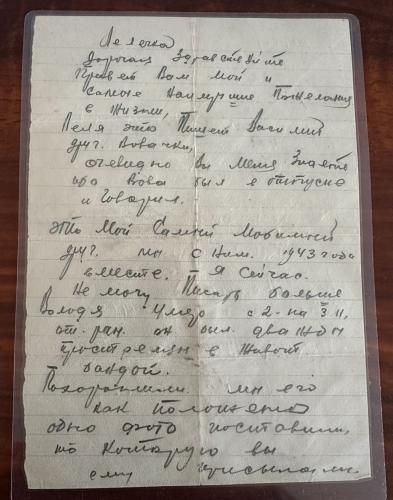 Лелечка
дорогая здравствуйте
Привет Вам мой и
самые наилучшие пожелания
в жизни,
Леля это Пишет Василий
друг. Вовачки,
очевидно вы меня знаете
ибо Вова был в отпуске
и говорил.
это мой самый любимый
друг. мы с ним. 1943 года
вместе. Я сейчас.
Не могу Писать больше
Володя умер с 2- на 3 
от. ран. он был.
прострелян в живот,
бандой.
Похоронили. мы его
как положено
одно фото поставили,
то которую вы
ему присылали.